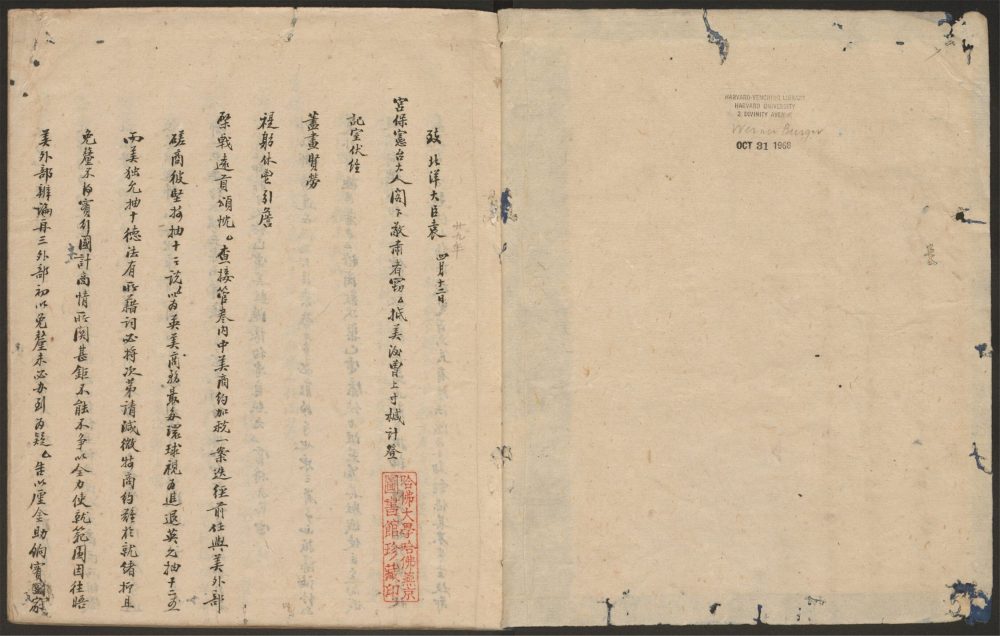 致北洋大臣袁 四月十二日
廿九年
宮保憲台大人閣下敬肅者勛ム抵美後曾上寸椷計登
記室伏維
藎畫賢勞
禔躬休鬯引詹
棨戟遠資頌忱ム查接管卷內中美商約加稅一案迭經前任與美外部
磋商彼堅持抽十之說以為英美商務最多環球視為進退英允抽十二五
而美獨允抽十德法有所藉詞必將次第請減微特商約難於就緒抑且
免釐不為實行國計商情所關甚鉅不能不爭以全力使就範圍因往晤
美外部辯論再三外部初以免釐未必辦到為疑ム告以釐金助餉實國家
哈佛大學哈佛燕京
圖書館珍藏印
HARVARD-YENCHING LIBRARY
HARVARD UNIVERSITY
2 DIVINITY AVENUE
Werner Burger
OCT 31 1968